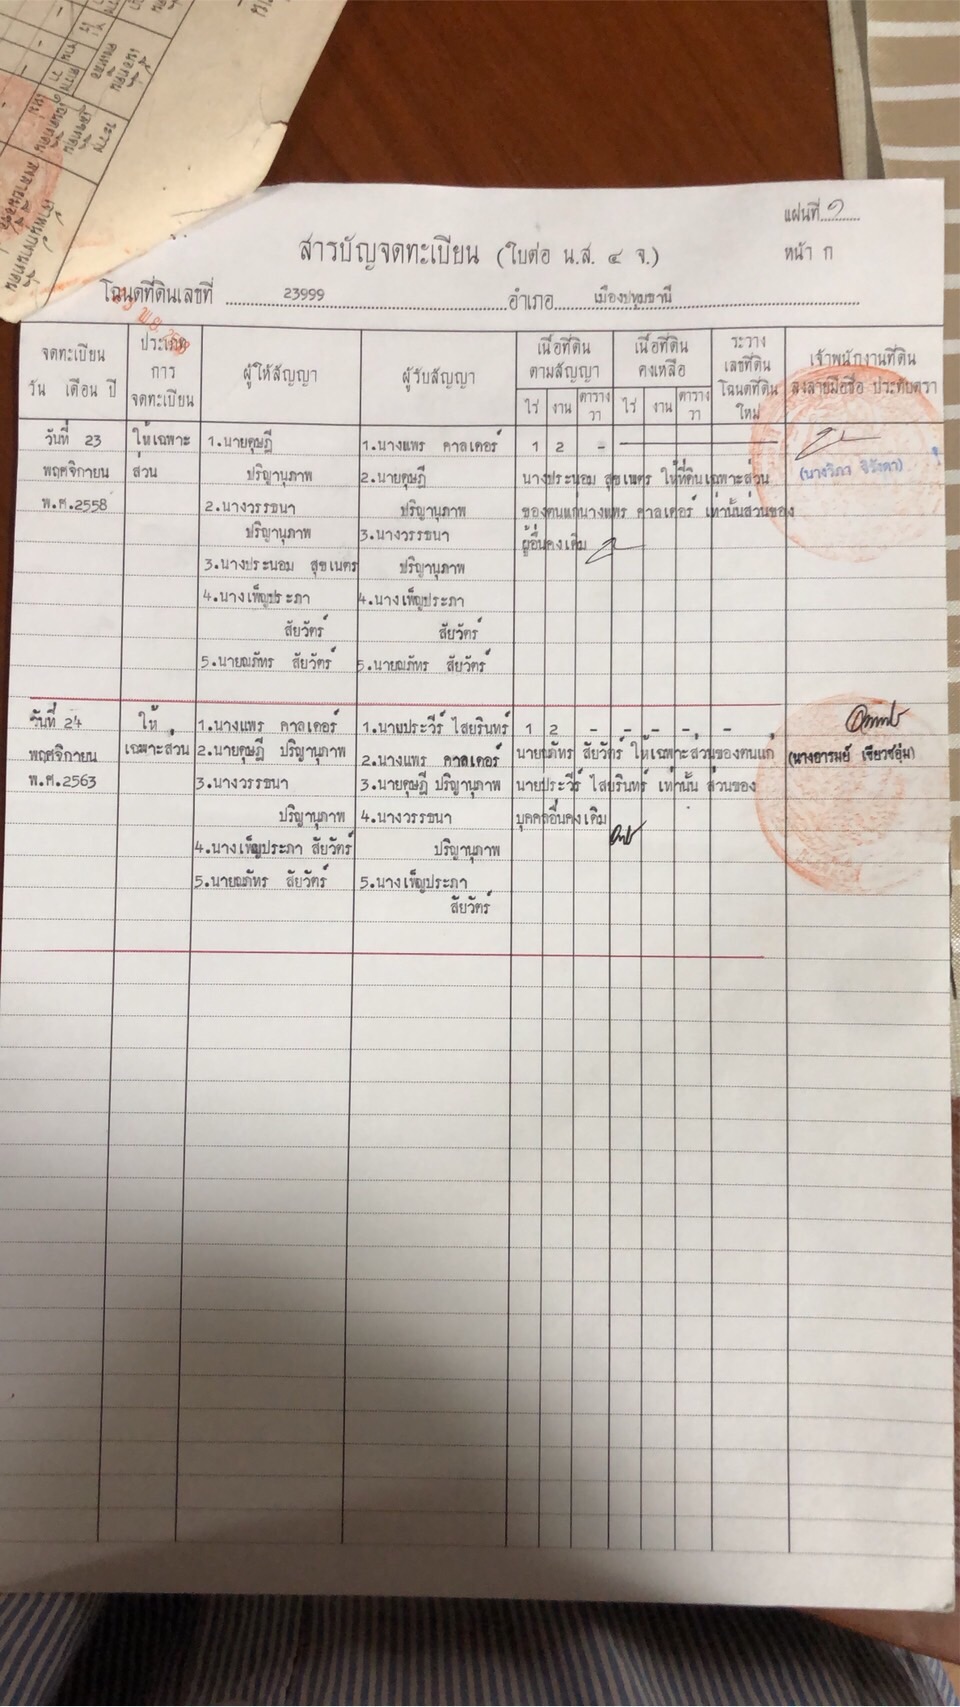 แผ่นที่ ๑
สารบัญจดทะเบียน (ใบต่อ น.ส. ๔ จ.)
หน้า ก
โฉนดที่ดินเลขที่ 23999 อำเภอ เมืองปทุมธานี
จดทะเบียน
วัน เดือน ปี
ประเภท
การ
จดทะเบียน
ผู้ให้สัญญา
ผู้รับสัญญา
เนื้อที่ดิน
ตามสัญญา
ไร่ งาน ตาราง
วา
เนื้อที่ดิน
คงเหลือ
ไร่ งาน ตาราง
วา
ระวาง
เลขที่ดิน
โฉนดที่ดิน
ใหม่
เจ้าพนักงานที่ดิน
ลงลายมือชื่อ ประทับตรา
วันที่ 23
พฤศจิกายน
พ.ศ.2558
ให้เฉพาะ
ส่วน
1.นายดุษฎี
ปริญานุภาพ
2.นางวรรธนา
ปริญานุภาพ
3.นางประนอม สุขเนตร
4.นางเพ็ญประภา
สัยวัตร์
5.นายณภัทร สัยวัตร์
1.นางแพร คาลเดอร์
2.นายดุษฎี
ปริญานุภาพ
3.นางวรรธนา
ปริญานุภาพ
4.นางเพ็ญประภา
สัยวัตร์
5.นายณภัทร สัยวัตร์
1 2 -
นางประนอม สุขเนตร ให้ที่ดินเฉพาะส่วน
ของตนแก่นางแพร คาลเดอร์ เท่านั้นส่วนของ
ผู้อื่นคงเดิม
(นางวิภา จิรังดา)
วันที่ 24
พฤศจิกายน
พ.ศ.2563
ให้
เฉพาะส่วน
1.นางแพร คาลเดอร์
2.นายดุษฎี ปริญานุภาพ
3.นางวรรธนา
ปริญานุภาพ
4.นางเพ็ญประภา สัยวัตร์
5.นายณภัทร สัยวัตร์
1.นายประวีร์ ไสยรินทร์
2.นางแพร คาลเดอร์
3.นายดุษฎี ปริญานุภาพ
4.นางวรรธนา
ปริญานุภาพ
5.นางเพ็ญประภา
สัยวัตร์
1 2 - - - - -
นายณภัทร สัยวัตร์ ให้เฉพาะส่วนของตนแก่
นายประวีร์ ไสยรินทร์ เท่านั้น ส่วนของ
บุคคลอื่นคงเดิม
(นางอารมย์ เขียวชอุ่ม)